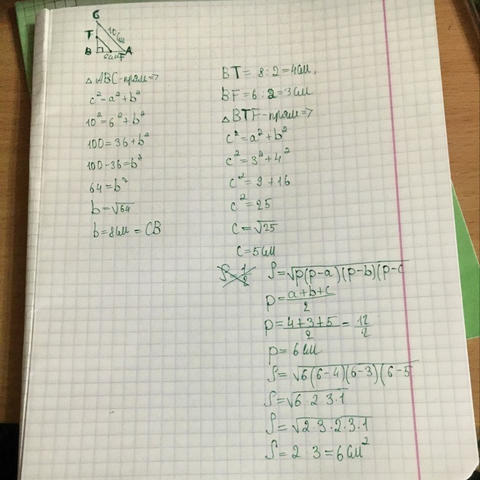 C
T 10 см
B A
△ABC-прям ⇒
c²=a²+b²
10²=6²+b²
100=36+b²
100-36=b²
64=b²
b=√64
b=8см = CB
BT= 8:2=4см.
BF=6:2=3см
△BTF-прям ⇒
c²=a²+b²
c²=3²+4²
c²=9+16
c²=25
c=√25
c=5см
S=√p(p-a)(p-b)(p-c
p=a+b+c/2
p=4+3+5/2=12/2
p=6см
S=√6(6-4)(6-3)(6-5
S=√6·2·3·1
S=√2·3·2·3·1
S=2 3=6см²